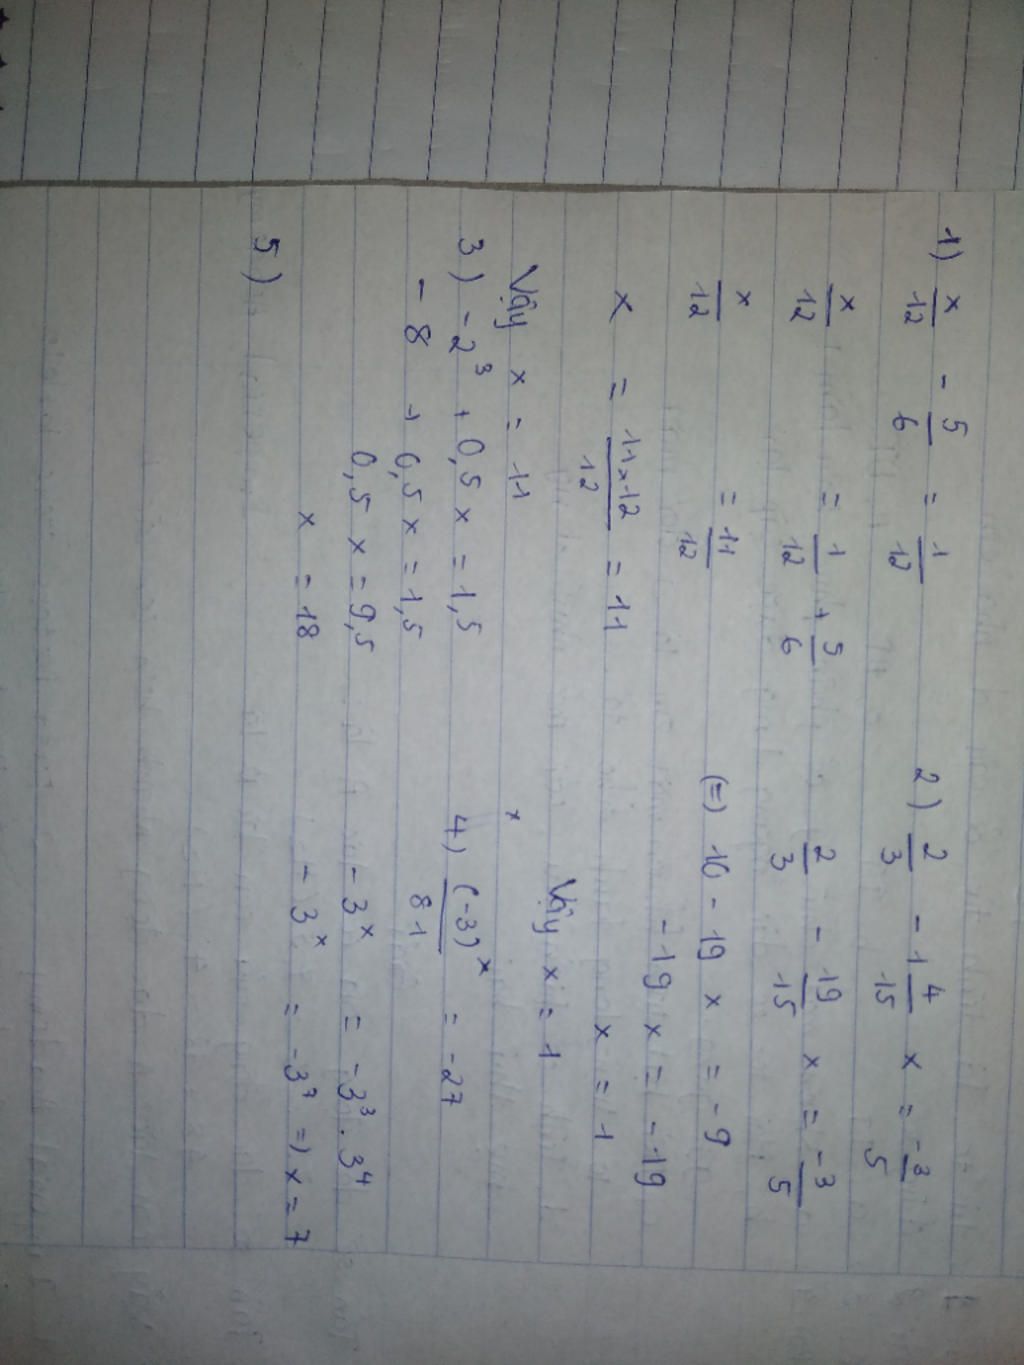 1) x/12 - 5/6 = 1/12
x/12 = 1/12 + 5/6
x/12 = 11/12
x = 11x12/12 = 11
Vậy x = 11
2) 2/3 - 1 4/15 x = -3/5
2/3 - 19/15 x = -3/5
(=) 10 - 19 x = -9
-19 x = -19
x = 1
Vậy x = 1
3) -2³ + 0,5 x = 1,5
- 8 + 0,5 x = 1,5
0,5 x = 9,5
x = 18
x
4) (-3)ˣ/81 = -27
-3ˣ = -3³ . 3⁴
-3ˣ = -3⁷ =) x = 7
5)